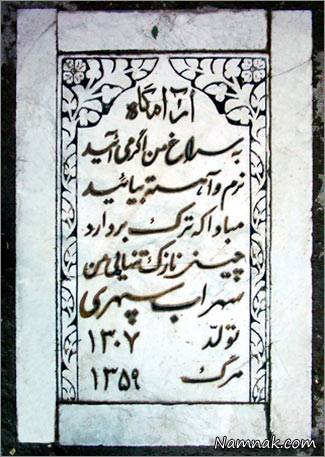 آرامگاه
به سراغ من اگر می آئید
نرم و آهسته بیائید
مبادا که ترک بردارد
چینی نازک تنهایی من
سهراب سپهری
تولد ۱۳۰۷
مرگ ۱۳۵۹
Namnak.com